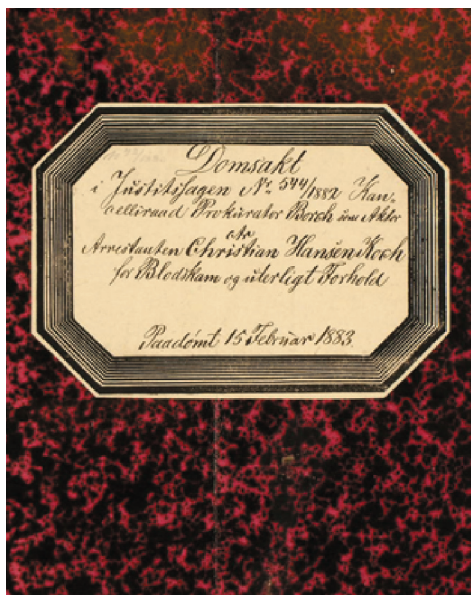 Domsakt
i Justitssagen No. 544/1882 Kan-
celliraad Prokurator Borch som Aktor
ctr
Arrestanten Christian Hansen Koch
for Blodskam og uterligt Forhold
Paadömt 15 Februar 1883.